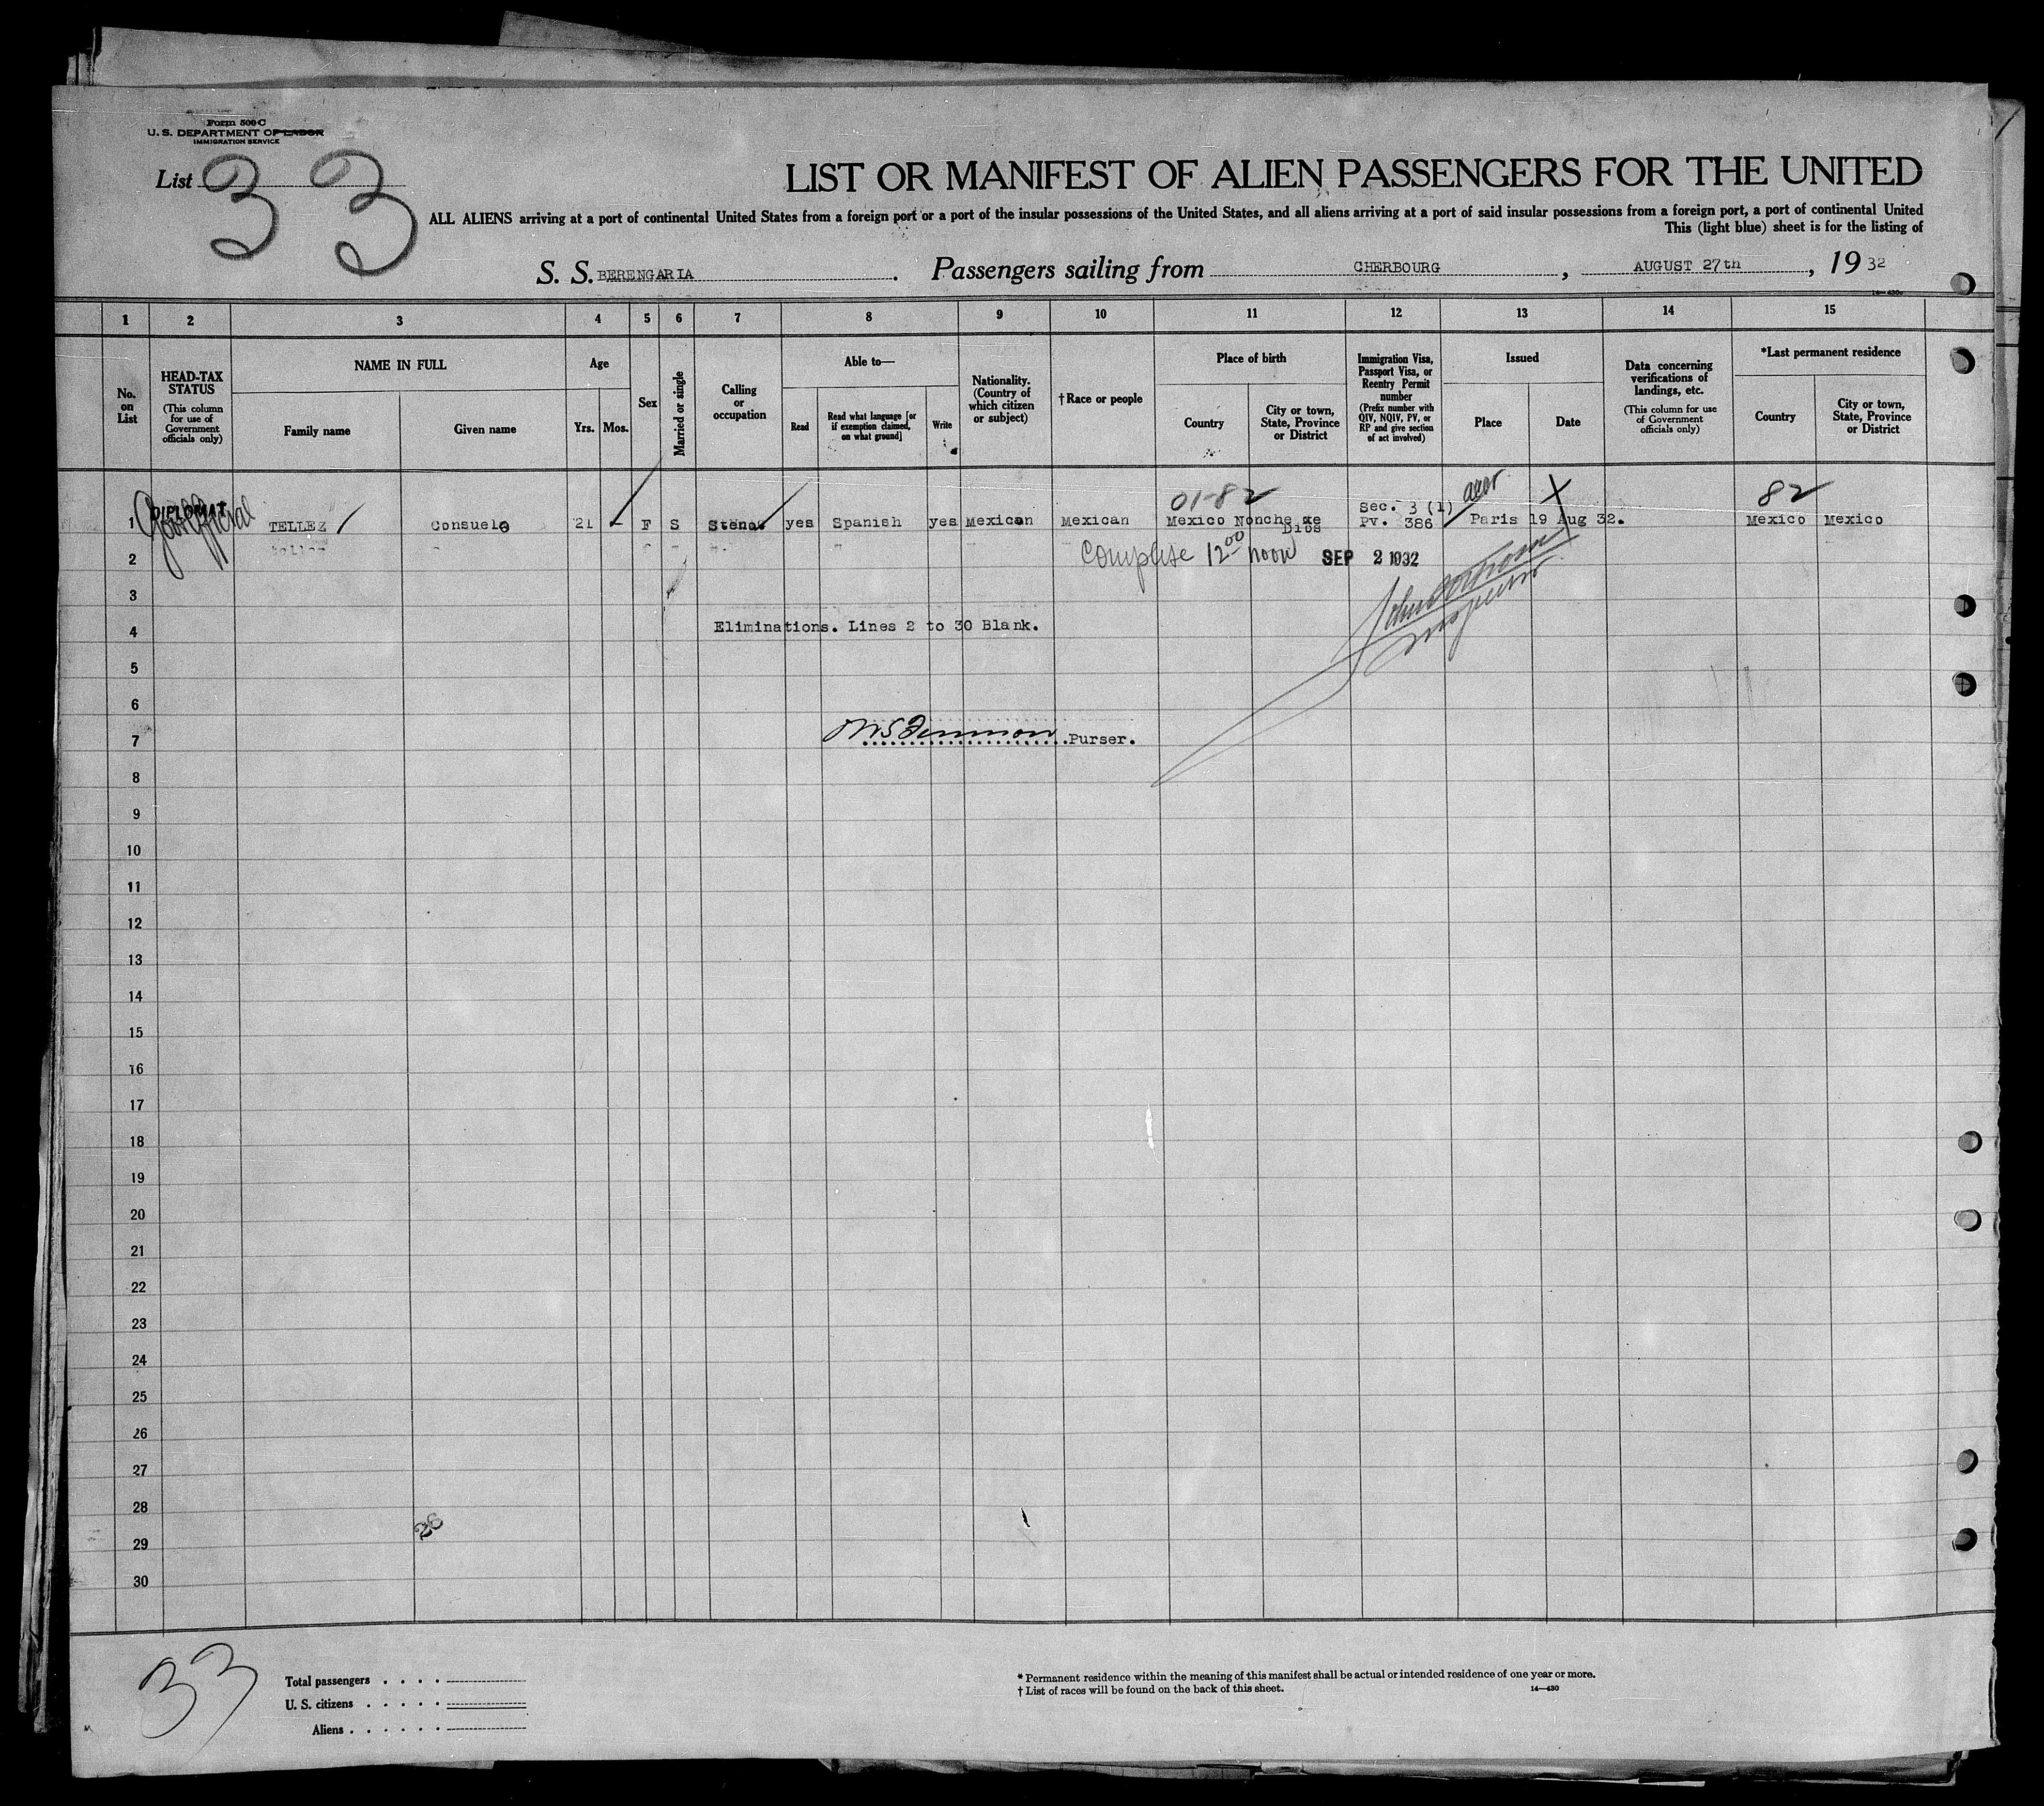 Form 500 C
U. S. DEPARTMENT OF LABOR
IMMIGRATION SERVICE
List 33
LIST OR MANIFEST OF ALIEN PASSENGERS FOR THE UNITED
ALL ALIENS arriving at a port of continental United States from a foreign port or a port of the insular possessions of the United States, and all aliens arriving at a port of said insular possessions from a foreign port, a port of continental United
This (light blue) sheet is for the listing of
S. S. BERENGARIA . Passengers sailing from CHERBOURG , AUGUST 27th , 19 32
14—430
1 2 3 4 5 6 7 8 9 10 11 12 13 14 15
No. on List
HEAD-TAX STATUS
(This column for use of Government officials only)
NAME IN FULL
Family name
Given name
Age
Yrs.
Mos.
Sex
Married or single
Calling or occupation
Able to—
Read
Read what language [or if exemption claimed, on what ground]
Write
Nationality. (Country of which citizen or subject)
†Race or people
Place of birth
Country
City or town, State, Province or District
Immigration Visa, Passport Visa, or Reentry Permit number
(Prefix number with QIV, NQIV, PV, or RP and give section of act involved)
Issued
Place
Date
Data concerning verifications of landings, etc.
(This column for use of Government officials only)
*Last permanent residence
Country
City or town, State, Province or District
01-82
82
DIPLOMAT
Govt Official
Sec. 3 (1)
1 TELLEZ Consuelo 21 - F S Steno. yes Spanish yes Mexican Mexican Mexico Nonche de Dios PV. 386 Paris 19 Aug 32. Mexico Mexico
2 Complete 12 00 noon SEP 2 1932
3
Inspector
4 Eliminations. Lines 2 to 30 Blank.
5
6
7 Purser.
8
9
10
11
12
13
14
15
16
17
18
19
20
21
22
23
24
25
26
27
28
29
30
33
Total passengers . . . .
U. S. citizens . . . . .
Aliens . . . . . .
* Permanent residence within the meaning of this manifest shall be actual or intended residence of one year or more.
† List of races will be found on the back of this sheet.
14—430